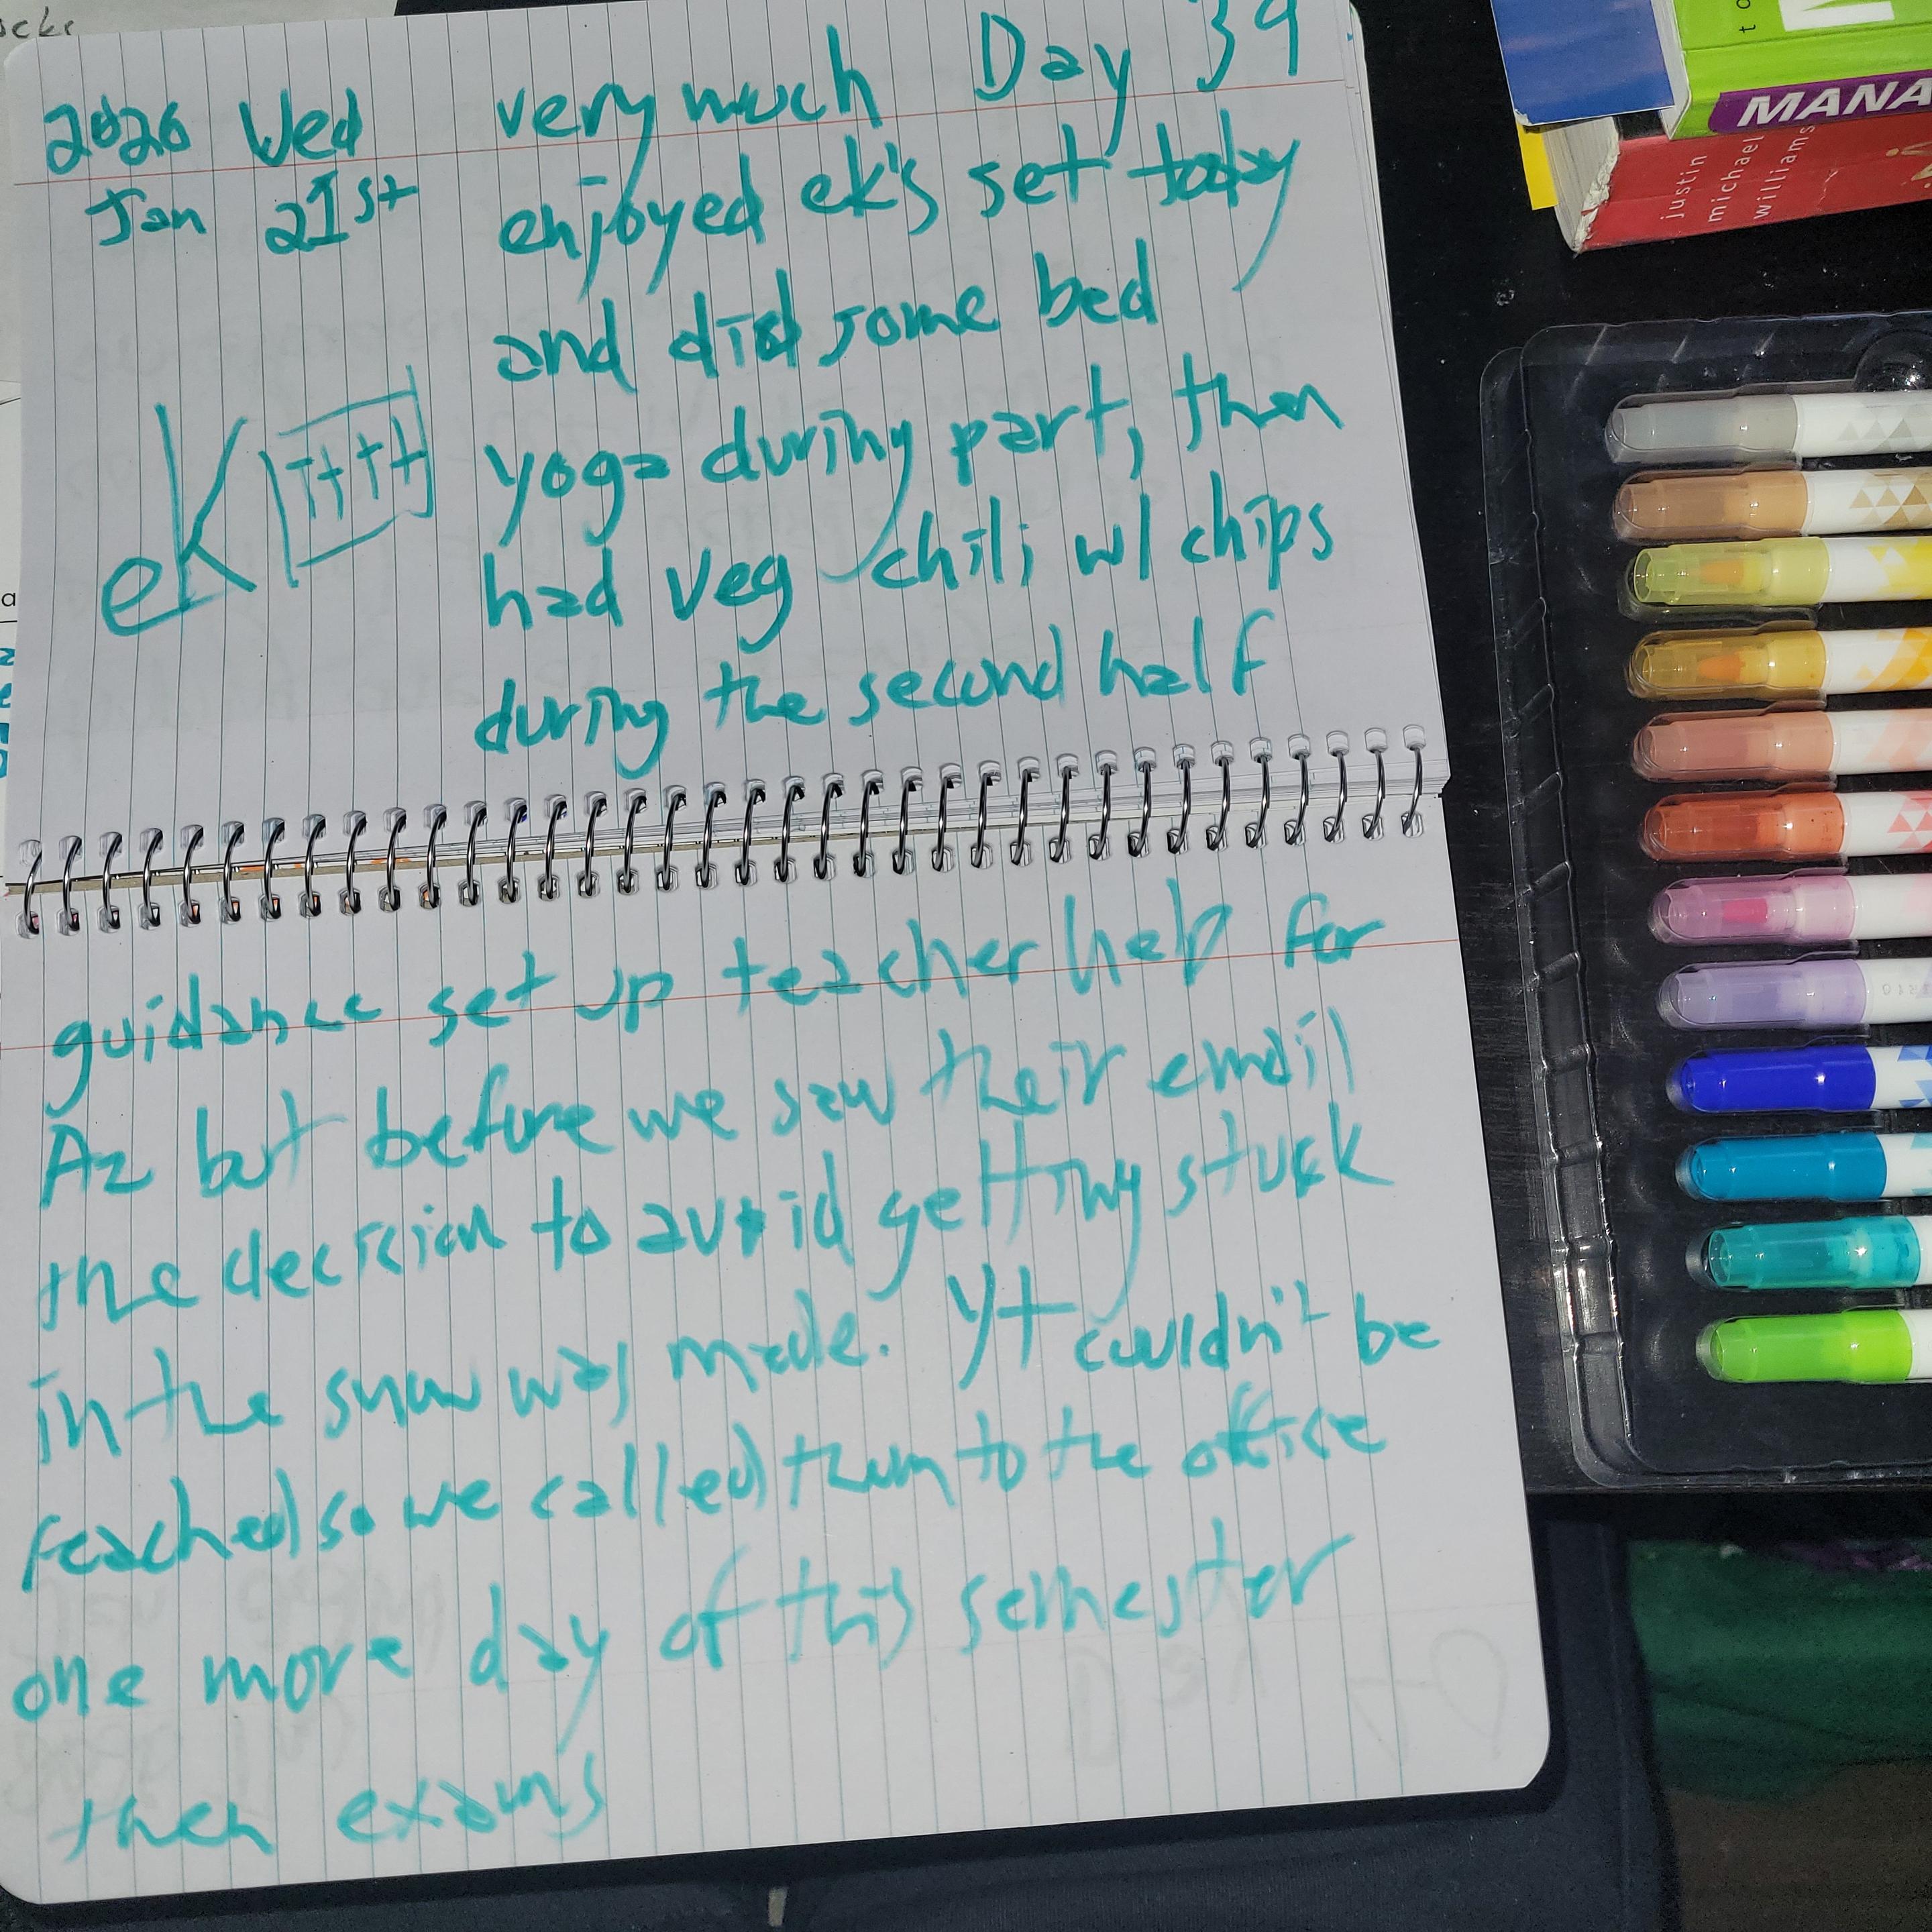 2026 Wed
Jan 21st
Day 39
very much
enjoyed ek's set today
and did some bed
yoga during part, then
had veg chili w/ chips
during the second half
eK
guidance set up teacher help for
Az but before we saw their email
the decision to avoid getting stuck
in the snow was made. Yt couldn't be
reached so we called them to the office
one more day of this semester
then exams
MANA
justin
michael
williams